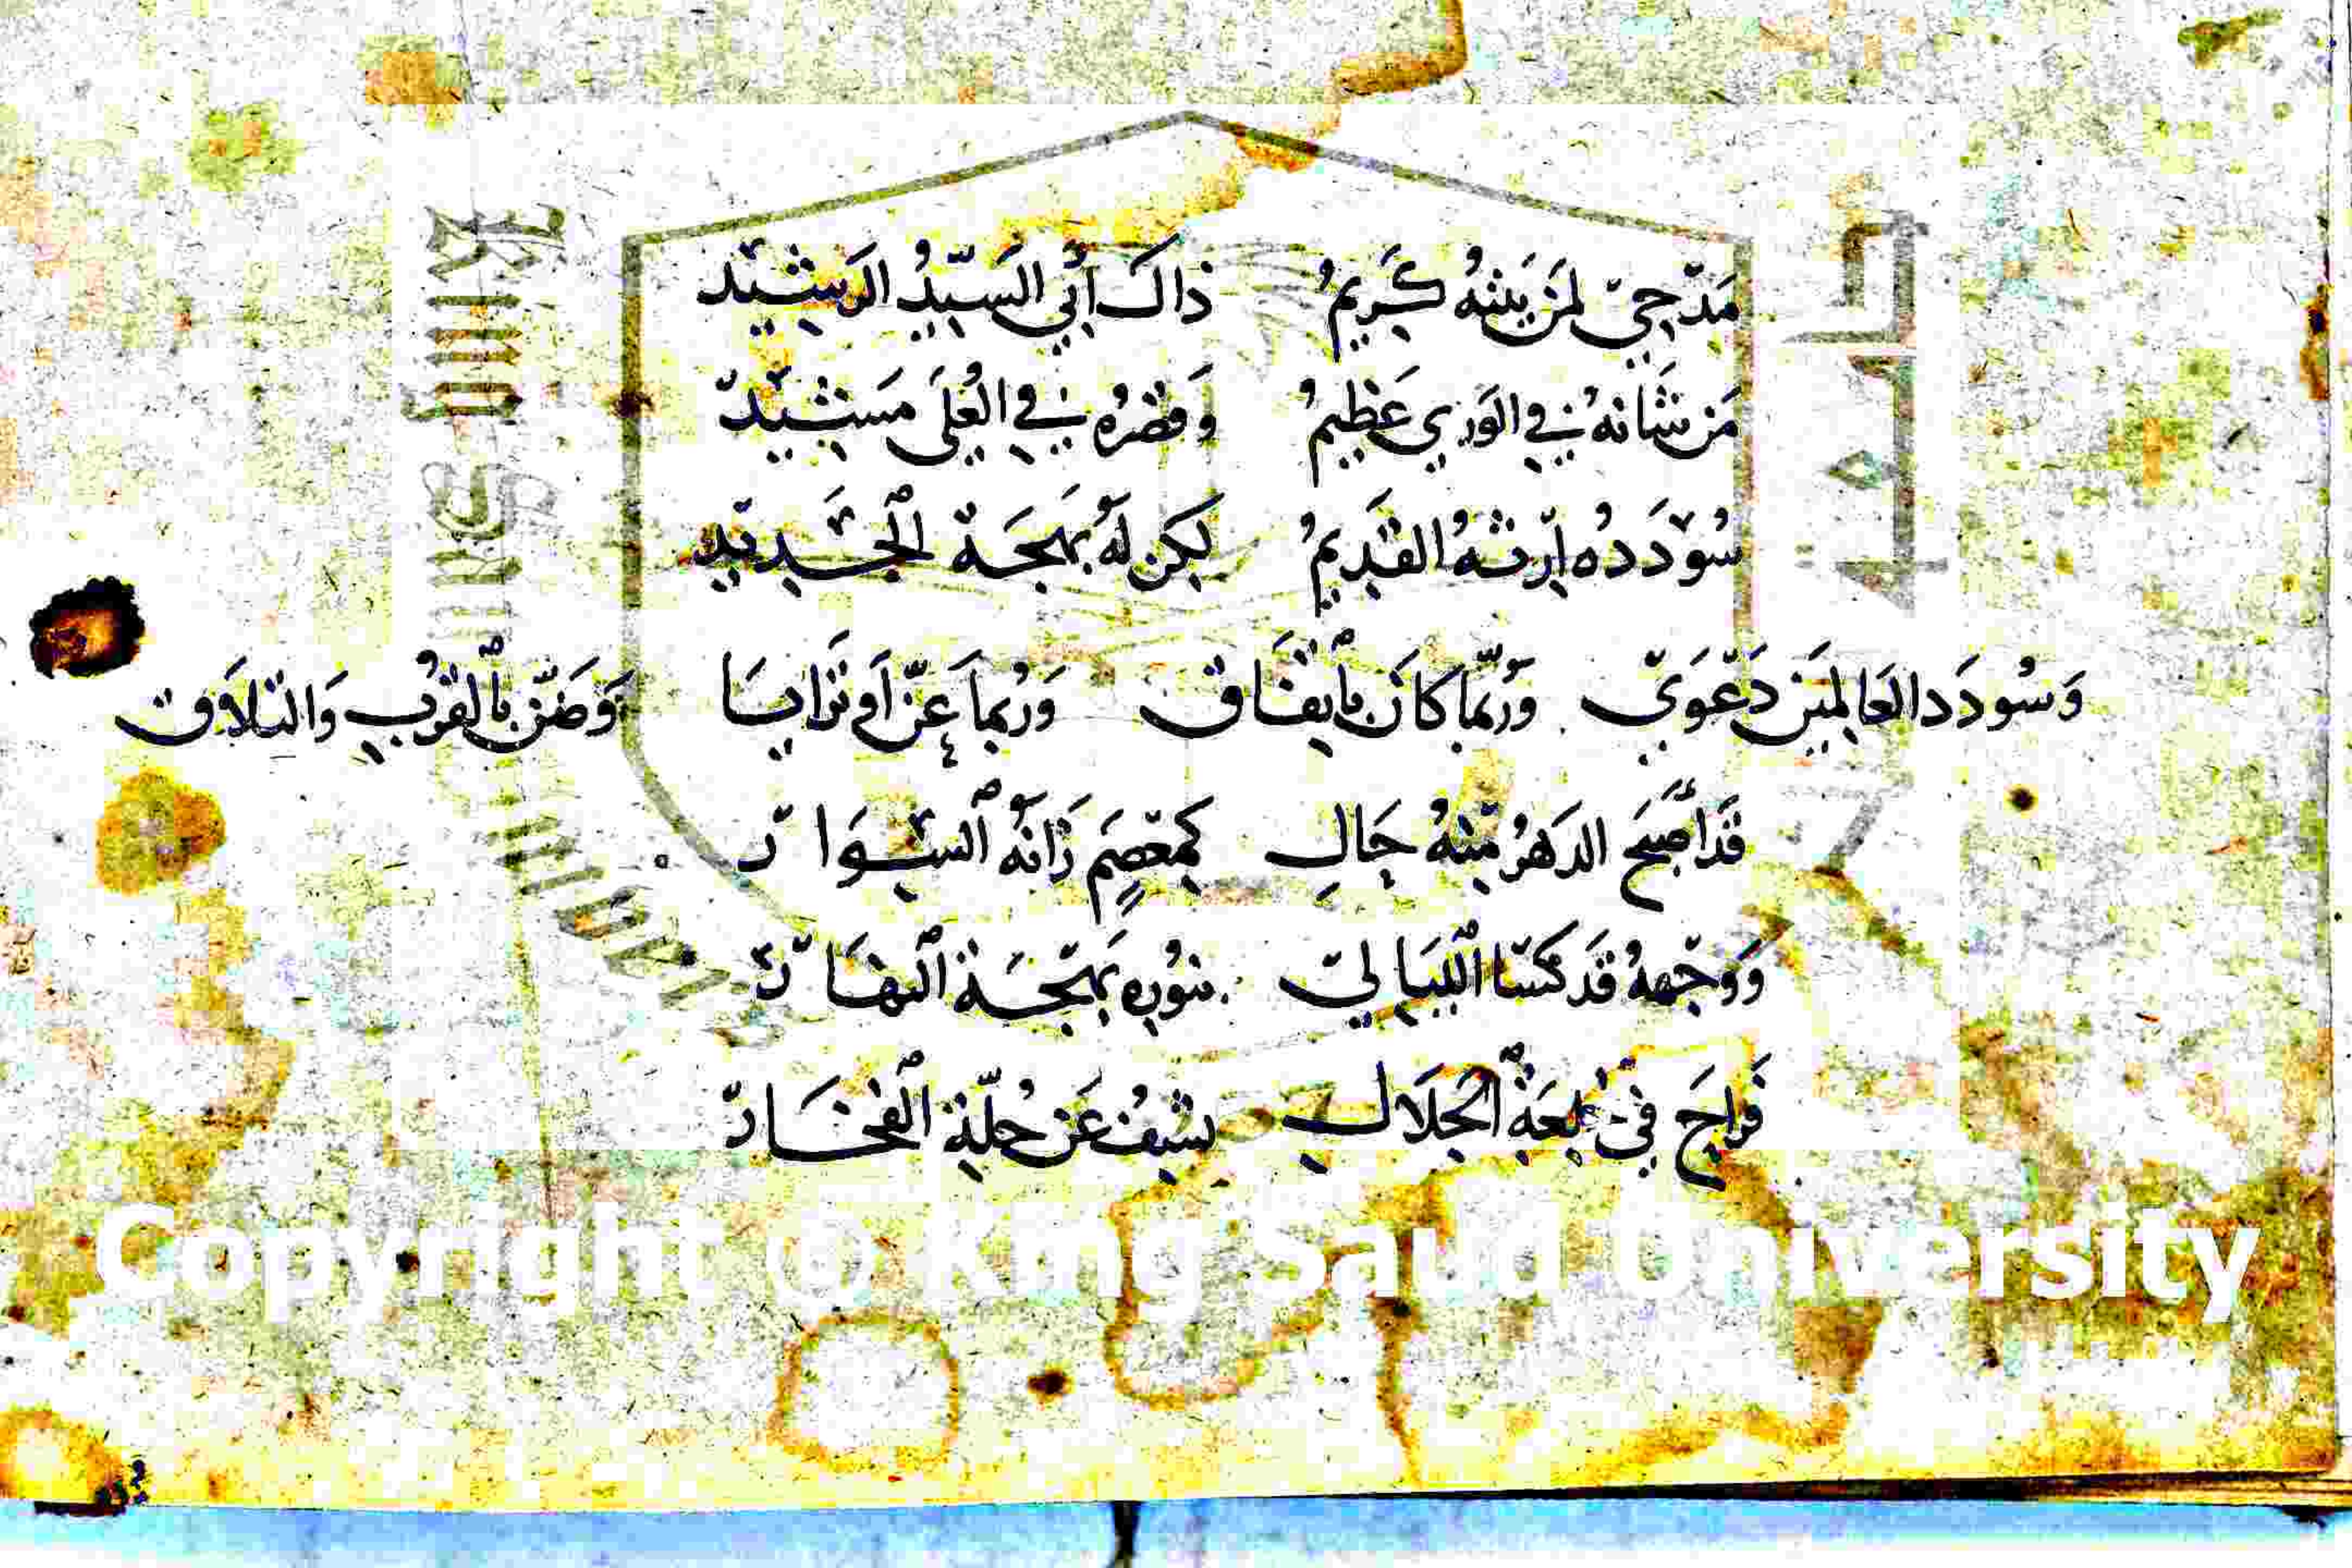 مَدْحِيْ لِمَنْ بَيْتُهُ كَرِيمُ ذَاكَ أَبِي السَيِّدُ الرَشِيْدْ
مَنْ شَانهُ فِي الوَرَي عَظِيمُ وَقَصْرُهُ فِي العُلَى مَشِيْدْ
سُوْدَدُه اِرْثهُ القَدِيمُ لكِن لَهُ بَهجَة الجَدِيْدْ
وَسُودَد العَالمِيَن دَعْوَيْ وَرُبَّمَا كَانَ بِاتِفَاق وَرُبمَا عَنّ اَو تَرَايَا وَضَنّ بِالقُربِ وَالتَلاَقِ
قَد اَصْبَحَ الدَهْرُ مِنْهُ حَالِ كَمِعْصَمٍ زَانَهُ السِوَارْ
وَوَجْههُ قَد كَسَا اللَيَالِيْ بنُورِهِ بَهْجَة النَهَارْ
فَرَاحَ فِيْ الجَلاَلِ يَشِفُّ عَن حُلّةِ الفَخَارْ
King Saud University
Copyright © King Saud University